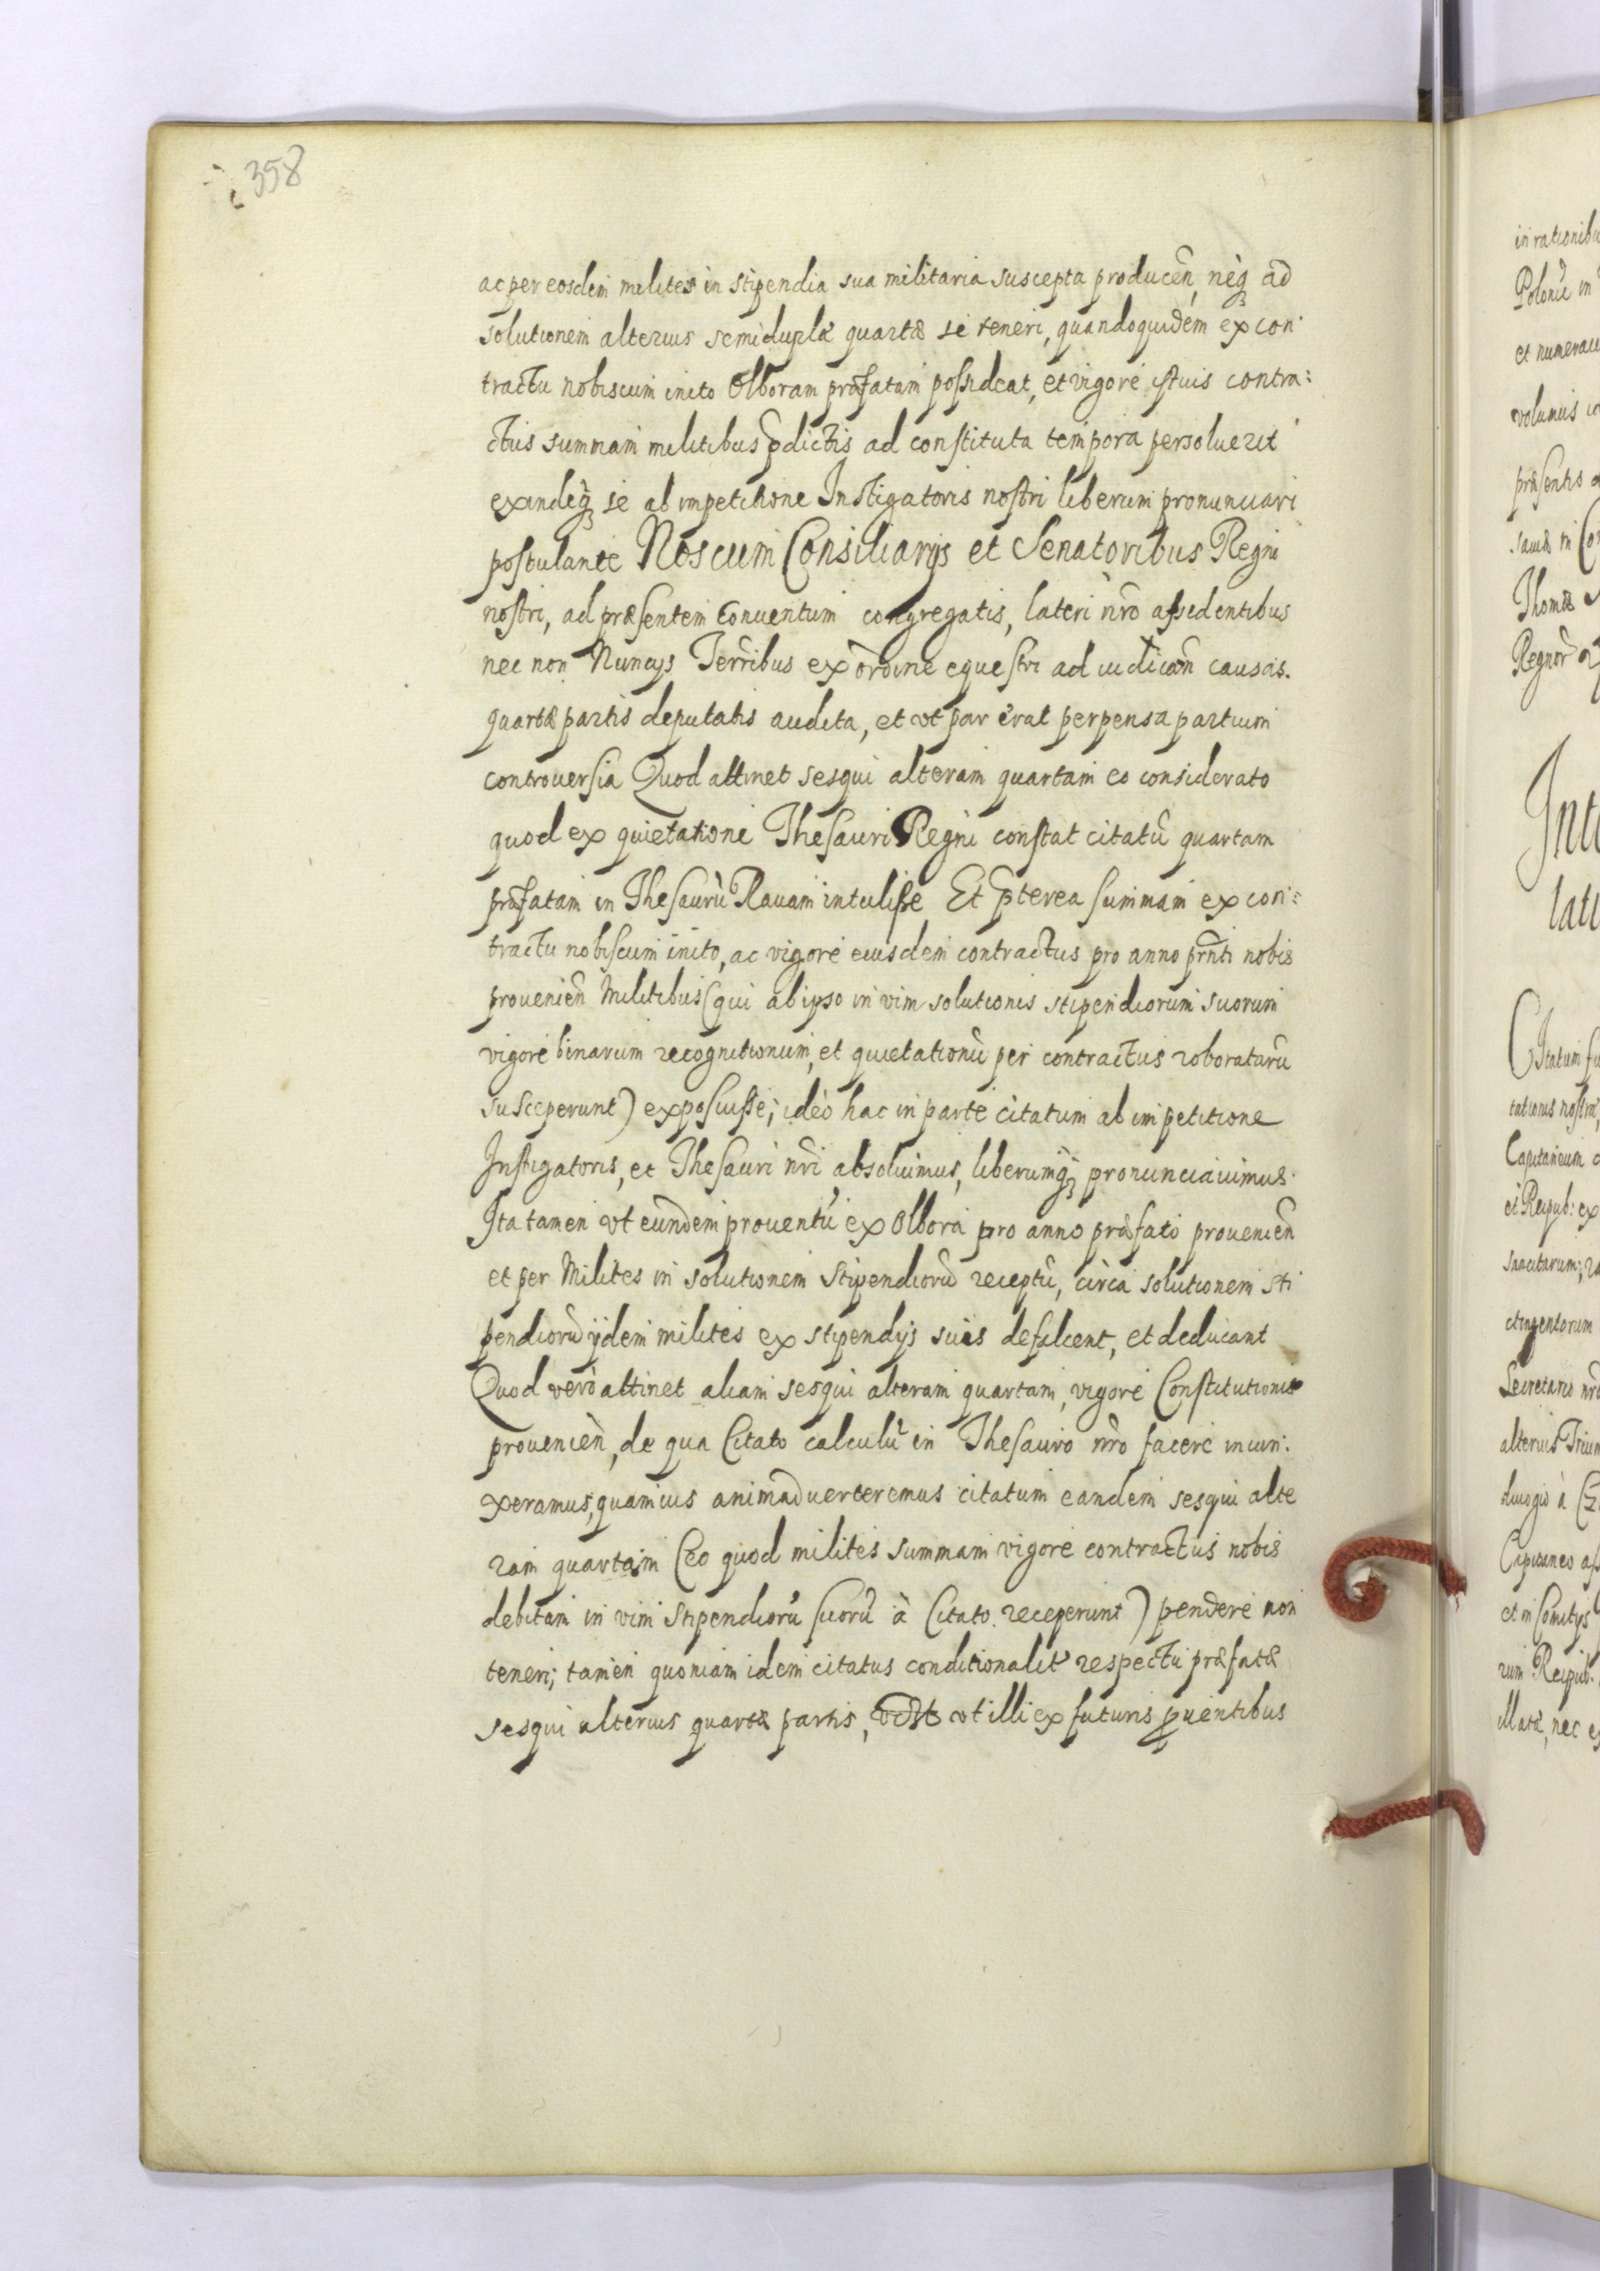 358
ac per eosdem milites in stipendia sua militaria suscepta producen̄, neq3 ad
solutionem alterius semiduplæ quartæ se teneri, quandoquidem ex con
tractu nobiscum inito Olboram præfatam possideat, et vigore istius contra:
ctus summam militibus p̄dictis ad constituta tempora persoluerit
exindeq3 se ab impetitione Instigatoris nostri liberum pronunciari
postulante Nos cum Consiliarijs et Senatoribus Regni
nostri, ad præsentem Conuentum congregatis, lateri nr̄o assedentibus
nec non Nuncijs Terr̄ibus ex ordine equestri ad iudican̄ causas.
quartæ partis deputatis audita, et vt par erat perpensa partium
controuersia Quod attinet sesqui alteram quartam eo considerato
quod ex quietatione Thesauri Regni constat citatū quartam
præfatam in Thesaurū Rauam intulisse Et p̄terea summam ex con:
tractu nobiscum inito, ac vigore eiusdem contractus pro anno pr̄nti nobis
prouenien̄ Militibus (qui ab ipso in vim solutionis stipendiorum suorum
vigore binarum recognitionum, et quietationū per contractus roboratarū
susceperunt) exposuisse; ideo hac in parte citatum ab impetitione
Instigatoris, et Thesauri nr̄i absoluimus, liberumq3 pronunciauimus.
Ita tamen vt eundem prouentū ex Olbora pro anno præfato prouenien̄
et per Milites in solutionem Stipendiorū receptū, circa solutionem sti
pendiorū ijdem milites ex stipendijs suis defalcent, et deducant
Quod vero attinet aliam sesqui alteram quartam, vigore Constitutionis
prouenien̄, de qua Citato calculū in Thesauro nr̄o facere iniun:
xeramus, quamuis animaduerteremus citatum eandem sesqui alte
ram quartam (eo quod milites summam vigore contractus nobis
debitam in vim Stipendiorū suorū à Citato receperunt) pendere non
teneri; tamen quoniam idem citatus conditionalit' respectu præfatæ
sesqui alterius quartæ partis, vt illi ex futuris ꝓuentibus
in rationibu
Poloniæ in
et numerau
volumus
præsentis
Thomæ
Regnor̄
Inte
lati
Citatum fu
tationis nostræ,
Capitaneum
et Reipub: ex
sancitarum;
ctingentorum
Secretario nr̄o
alterius Trium
Capitaneo ass
et in Comitijs
rum Reipub:
illatæ, nec